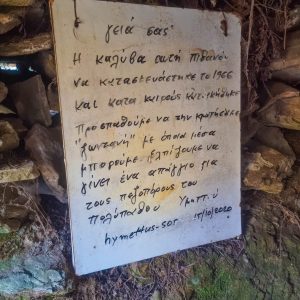 γειά σας
Η καλύβα αυτή πιθανόν
να κατασκευάστηκε το 1966
και κατα καιρούς
Προσπαθούμε να την κρατήσουμε
"ζωντανή" με όποια μέσα
μπορούμε. Ελπίζουμε να
γίνει ένα απάγγιο για
τους πεζοπόρους του
πολύπαθου Υμηττού
hymettus-sar 15/10/2020